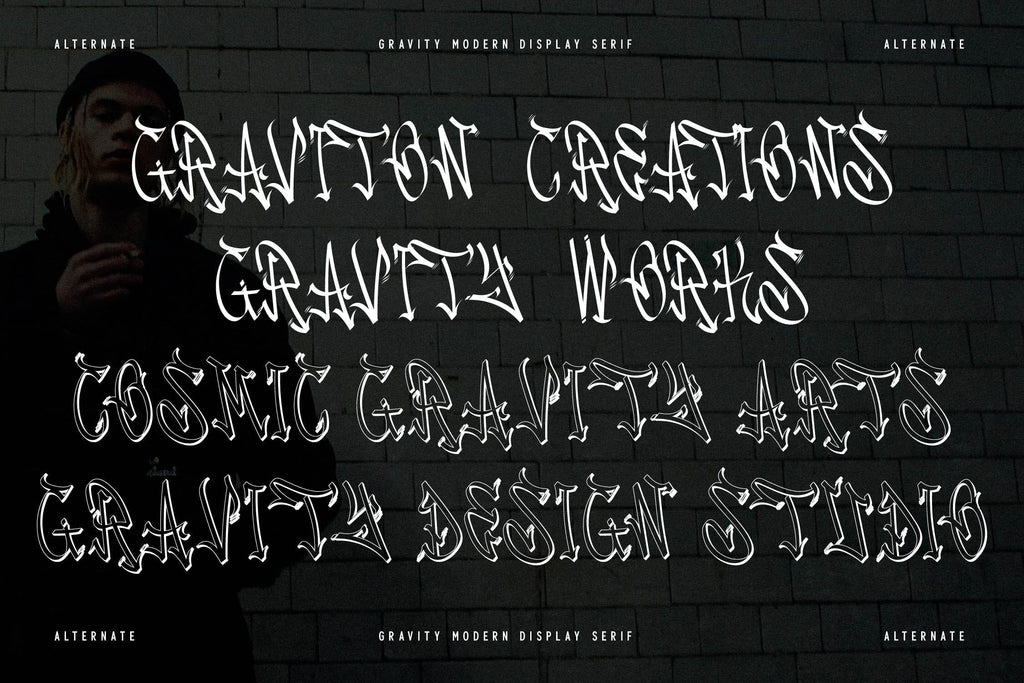 ALTERNATE GRAVITY MODERN DISPLAY SERIF ALTERNATE
GRAVITON CREATIONS
GRAVITY WORKS
COSMIC GRAVITY ARTS
GRAVITY DESIGN STUDIO
ALTERNATE GRAVITY MODERN DISPLAY SERIF ALTERNATE